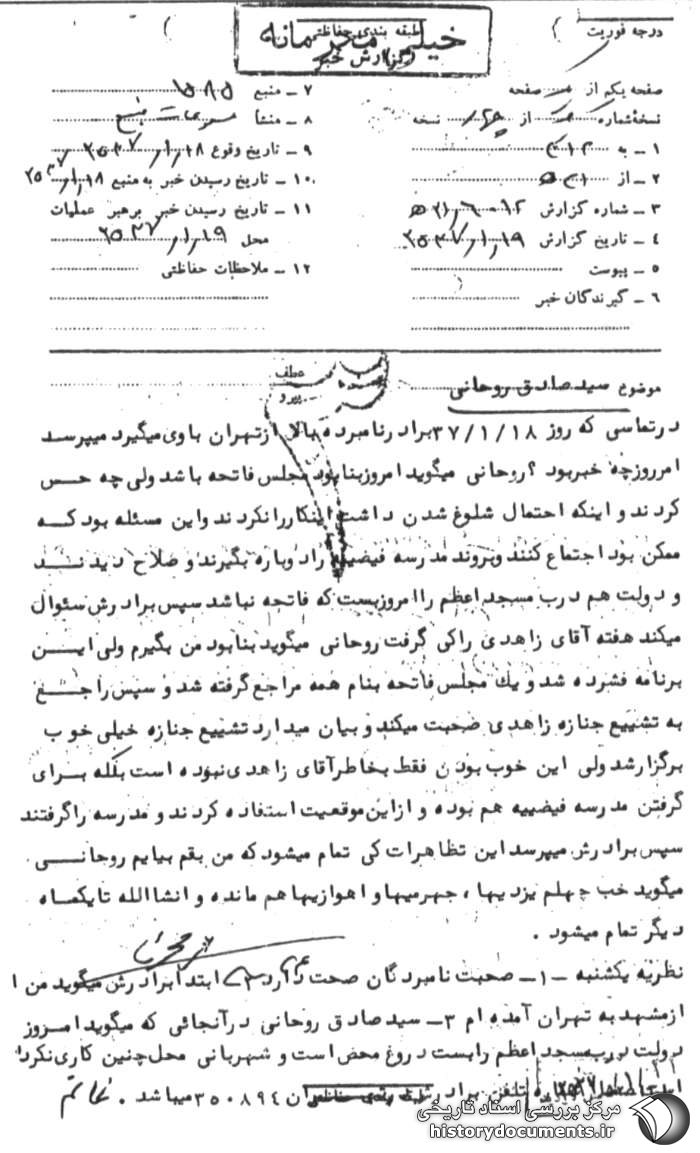 خیلی محرمانه
طبقه بندی حفاظتی
گزارش خبر
درجه فوریت ( )
صفحه یکم از صفحه
نسخهٔ شماره از نسخه
۱ ـ به ۳۱۲
۲ ـ از ۲۱ ه
۳ ـ شماره گزارش
۴ ـ تاریخ گزارش ۲۵۳۷/۱/۱۹
۵ ـ پیوست
۶ ـ گیرندگان خبر
۷ ـ منبع
۸ ـ منشأ
۹ ـ تاریخ وقوع ۲۵۳۷/۱/۱۸
۱۰ ـ تاریخ رسیدن خبر به منبع ۲۵۳۷/۱/۱۸
۱۱ ـ تاریخ رسیدن خبر برهبر عملیات
محل ۲۵۳۷/۱/۱۹
۱۲ ـ ملاحظات حفاظتی
عطف
پیرو
موضوع سید صادق روحانی
درتماسی که روز ۳۷/۱/۱۸ برادر نامبرده بالا ازتهران باوی میگیرد میپرسد
امرروزچه خبربود ؟ روحانی میگوید امروزبنابود مجلس فاتحه باشد ولی چه حس
کردند و اینکه احتمال شلوغ شدن داشت اینکاررانکردند واین مسئله بود که
ممکن بود اجتماع کنند وبروند مدرسه فیضیه راد وباره بگیرند و صلاح دیدند
و دولت هم درب مسجد اعظم راامروزبست که فاتحه نباشد سپس برادرش سئوال
میکند هفته آقای زاهدی راکی گرفت روحانی میگوید بنابود من بگیرم ولی این
برنامه فشرده شد و یك مجلس فاتحه بنام همه مراجع گرفته شد و سپس راجع
به تشییع جنازه زاهدی صحبت میکند و بیان میدارد تشییع جنازه خیلی خوب
برگزارشد ولی این خوب بودن فقط بخاطرآقای زاهدی نبوده است بلکه برای
گرفتن مدرسه فیضییه هم بوده و ازاین موقعیت استفاده کردند و مدرسه راگرفتند
سپس برادرش میپرسد این تظاهرات کی تمام میشود که من بقم بیایم روحانی
میگوید خب چهلم یزدیها ، جهرمیها و اهوازیها هم مانده و انشاالله تایکماه
دیگر تمام میشود .
نظریه یکشنبه ـ۱ـ صحبت نامبردگان صحت دارد ۲ـ ابتدا برادرش میگوید من
ازمشهد به تهران آمده ام ۳ـ سید صادق روحانی درآنجائی که میگوید امروز
دولت درب مسجد اعظم رابست دروغ محض است و شهربانی محل چنین کاری نکرده
تلفن برادرش ۳۵۰۸۹۴ میباشد .
طبقه بندی حفاظتی
مرکز بررسی اسناد تاریخی
historydocuments.ir